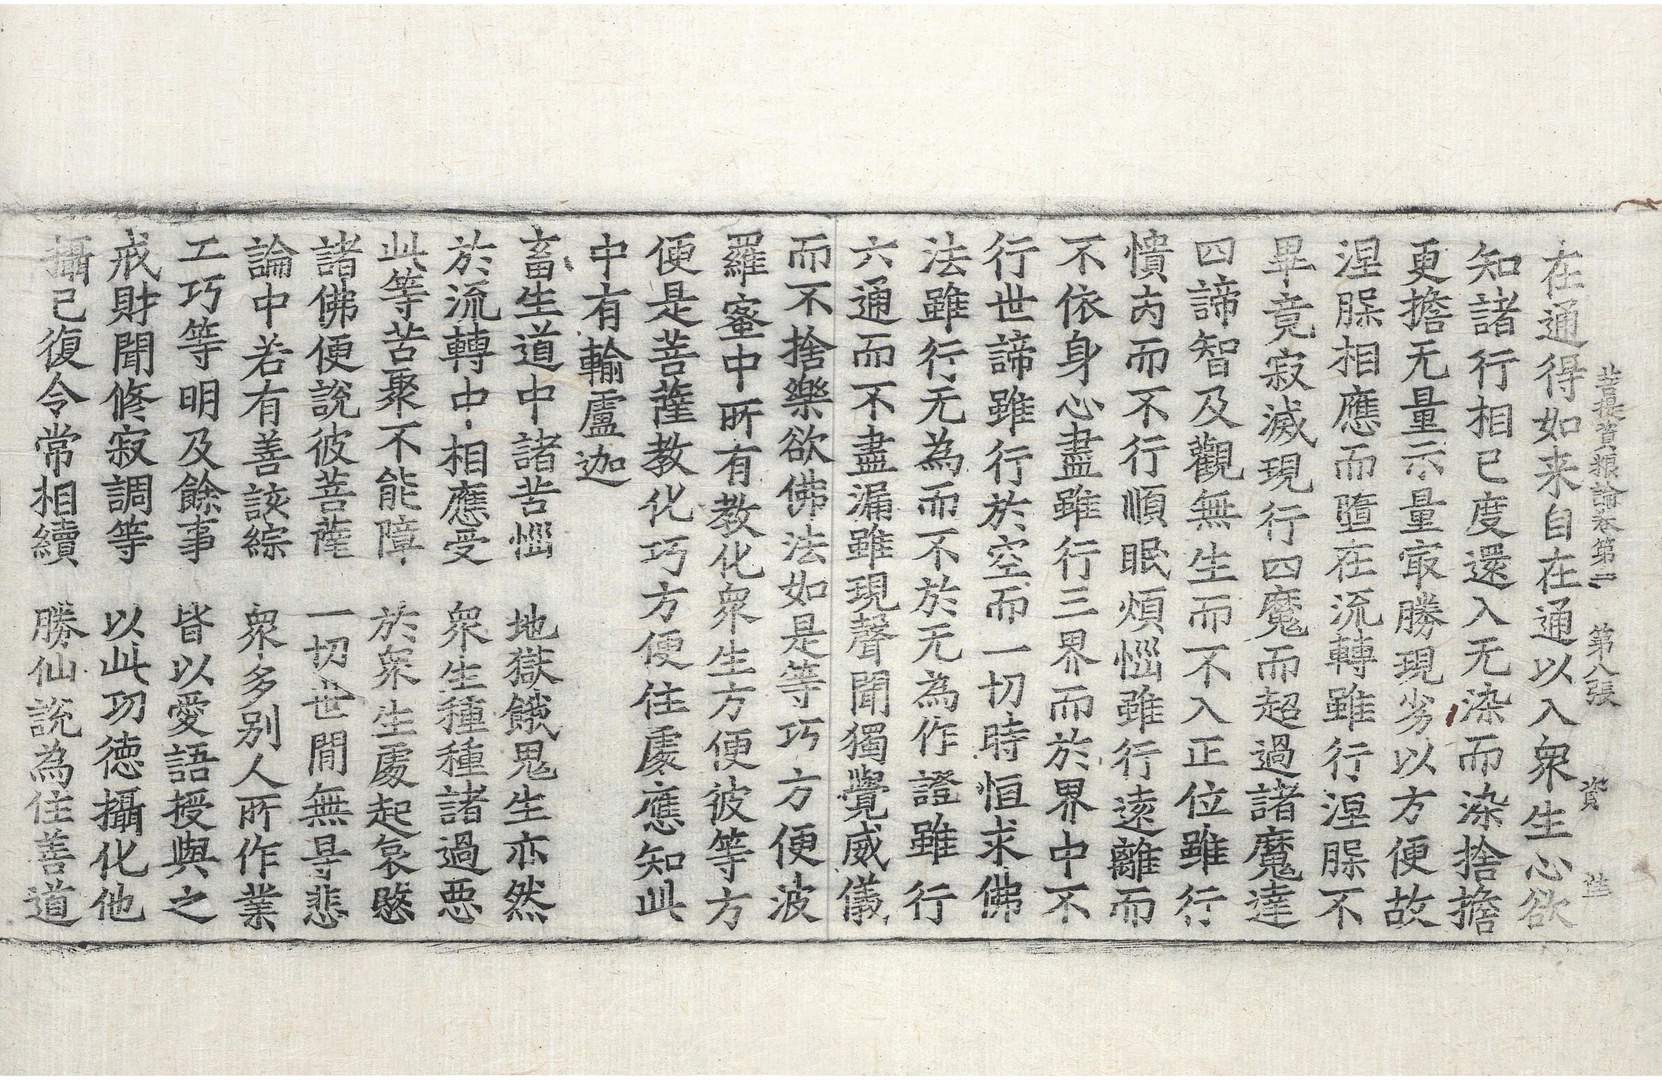 菩提資粮論卷第二　第八張　資
在通得如来自在通以入衆生心欲
知諸行相已度還入无染而染捨擔
更擔无量示量㝡勝現劣以方便故
涅槃相應而墮在流轉雖行涅槃不
畢竟寂滅現行四魔而超過諸魔達
四諦智及觀無生而不入正位雖行
憒內而不行順眠煩惱雖行遠離而
不依身心盡雖行三界而於界中不
行世諦雖行於空而一切時恒求佛
法雖行无為而不於无為作證雖行
六通而不盡漏雖現聲聞獨覺威儀
而不捨樂欲佛法如是等巧方便波
羅蜜中所有教化衆生方便彼等方
便是菩薩教化巧方便住處應知此
中有輸盧迦
畜生道中諸苦惱　地獄餓鬼生亦然
於流轉中相應受　衆生種種諸過惡
此等苦聚不能障　於衆生處起哀愍
諸佛便說彼菩薩　一切世間無㝵悲
論中若有善該綜　衆多别人所作業
工巧等明及餘事　皆以愛語授與之
戒財聞修寂調等　以此功德攝化他
攝已復令常相續　勝仙說為住善道